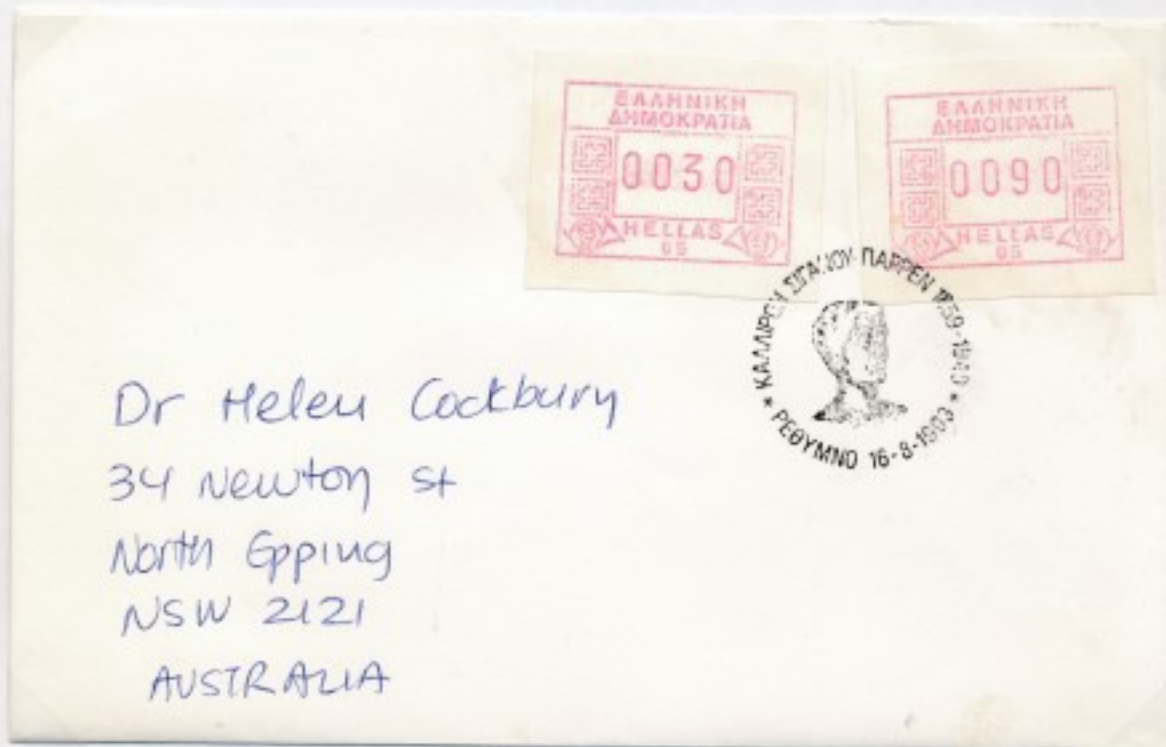 ΕΛΛΗΝΙΚΗ
ΔΗΜΟΚΡΑΤΙΑ
0030
HELLAS
05
ΕΛΛΗΝΙΚΗ
ΔΗΜΟΚΡΑΤΙΑ
0090
HELLAS
05
* ΚΑΛΛΙΡΟΗ ΣΙΓΑΝΟΥ ΠΑΡΡΕΝ *
ΡΕΘΥΜΝΟ
Dr Helen Cockburn
34 Newton St
North Epping
NSW 2121
AUSTRALIA